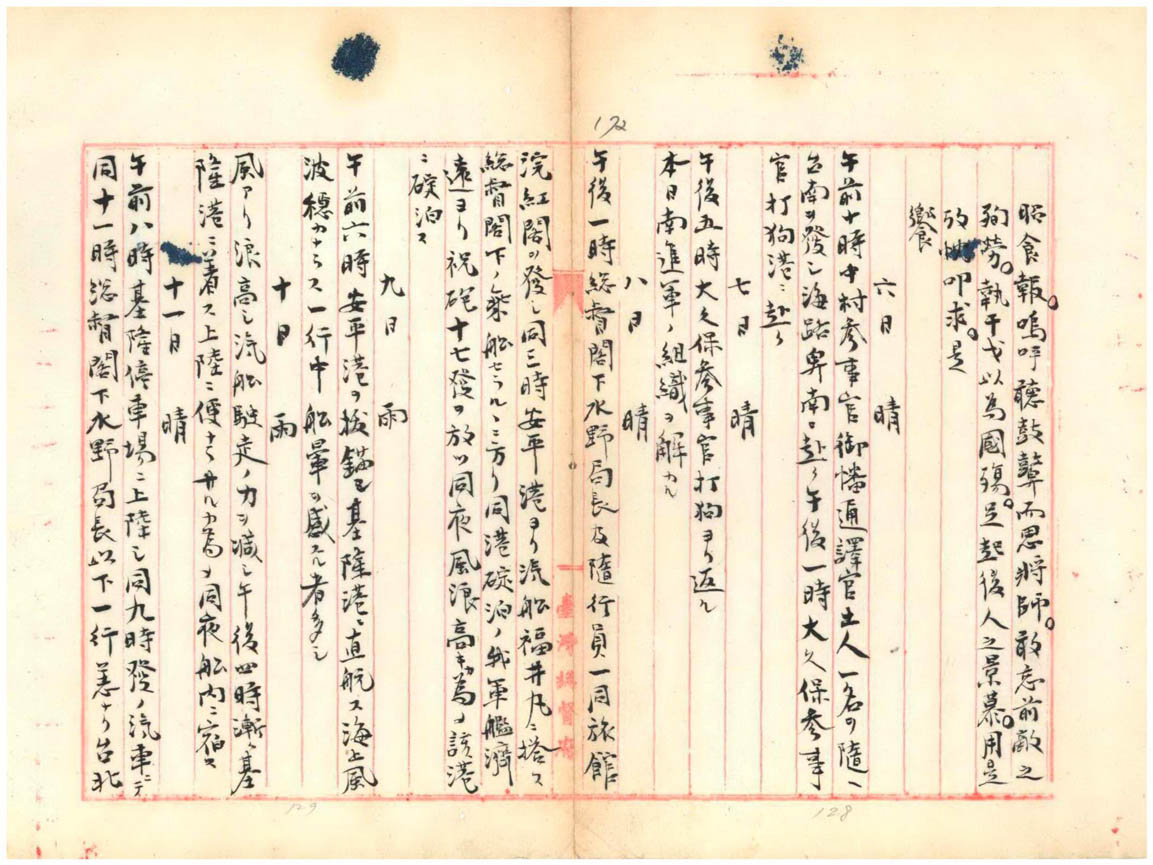 172
昭食報。嗚呼聽鼓鼙而思將帥。敢忘前敵之
殉勞。執干戈以為國殤。足起後人之景慕。用是
叩求。是
饗
六日　晴
午前十時中村参事官御幡通譯官土人一名ヲ随ヘ
台南ヲ發シ海路卑南ニ赴ク午後一時大久保参事
官打狗港ニ赴ク
七日　晴
午後五時大久保参事官打狗ヨリ返ル
本日南進軍ノ組織ヲ解カル
八日　晴
午後一時総督閣下水野局長及随行員一同旅館
浣紅閣ヲ發シ同三時安平港ヨリ汽船福井丸ニ搭ス
総督閣下ノ乗船セラルヽニ方リ同港碇泊ノ我軍艦濟
遠ヨリ祝砲十七發ヲ放ツ同夜風浪高キカ為メ該港
ニ碇泊ス
九日　雨
午前六時安平港ヲ抜錨シ基隆港ニ直航ス海上風
波穏カナラス一行中船暈ヲ感スル者多シ
十日　雨
風アリ浪高シ汽船駛走ノ力ヲ減シ午後四時漸ク基
隆港ニ着ス上陸ニ便ナラサルカ為メ同夜船内ニ宿ス
十一日　晴
午前八時基隆停車場ニ上陸シ同九時發ノ汽車ニテ
同十一時総督閣下水野局長以下一行恙ナク台北
臺灣總督府
128
129